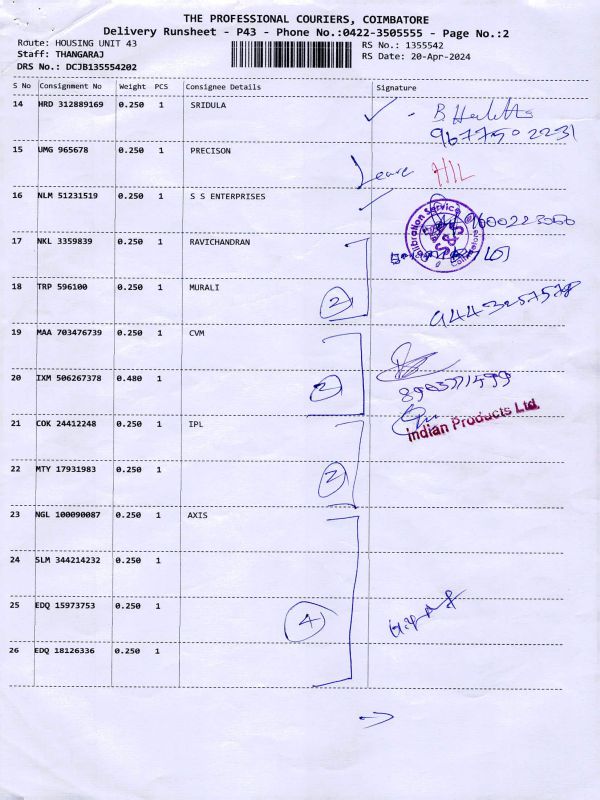 THE PROFESSIONAL COURIERS, COIMBATORE
Delivery Runsheet - P43 - Phone No.:0422-3505555 - Page No.:2
Route: HOUSING UNIT 43 RS No.: 1355542
Staff: THANGARAJ RS Date: 20-Apr-2024
DRS No.: DCJB135554202
S No Consignment No Weight PCS Consignee Details Signature
14 HRD 312889169 0.250 1 SRIDULA
9677502231
15 UMG 965678 0.250 1 PRECISON
Leave
16 NLM 51231519 0.250 1 S S ENTERPRISES
Calibration Service
S&S
Coimbatore
17 NKL 3359839 0.250 1 RAVICHANDRAN
18 TRP 596100 0.250 1 MURALI
2 9443257578
19 MAA 703476739 0.250 1 CVM
20 IXM 506267378 0.480 1
2
21 COK 24412248 0.250 1 IPL
Indian Products Ltd.
22 MTY 17931983 0.250 1
2
23 NGL 100090087 0.250 1 AXIS
24 SLM 344214232 0.250 1
25 EDQ 15973753 0.250 1
4
26 EDQ 18126336 0.250 1